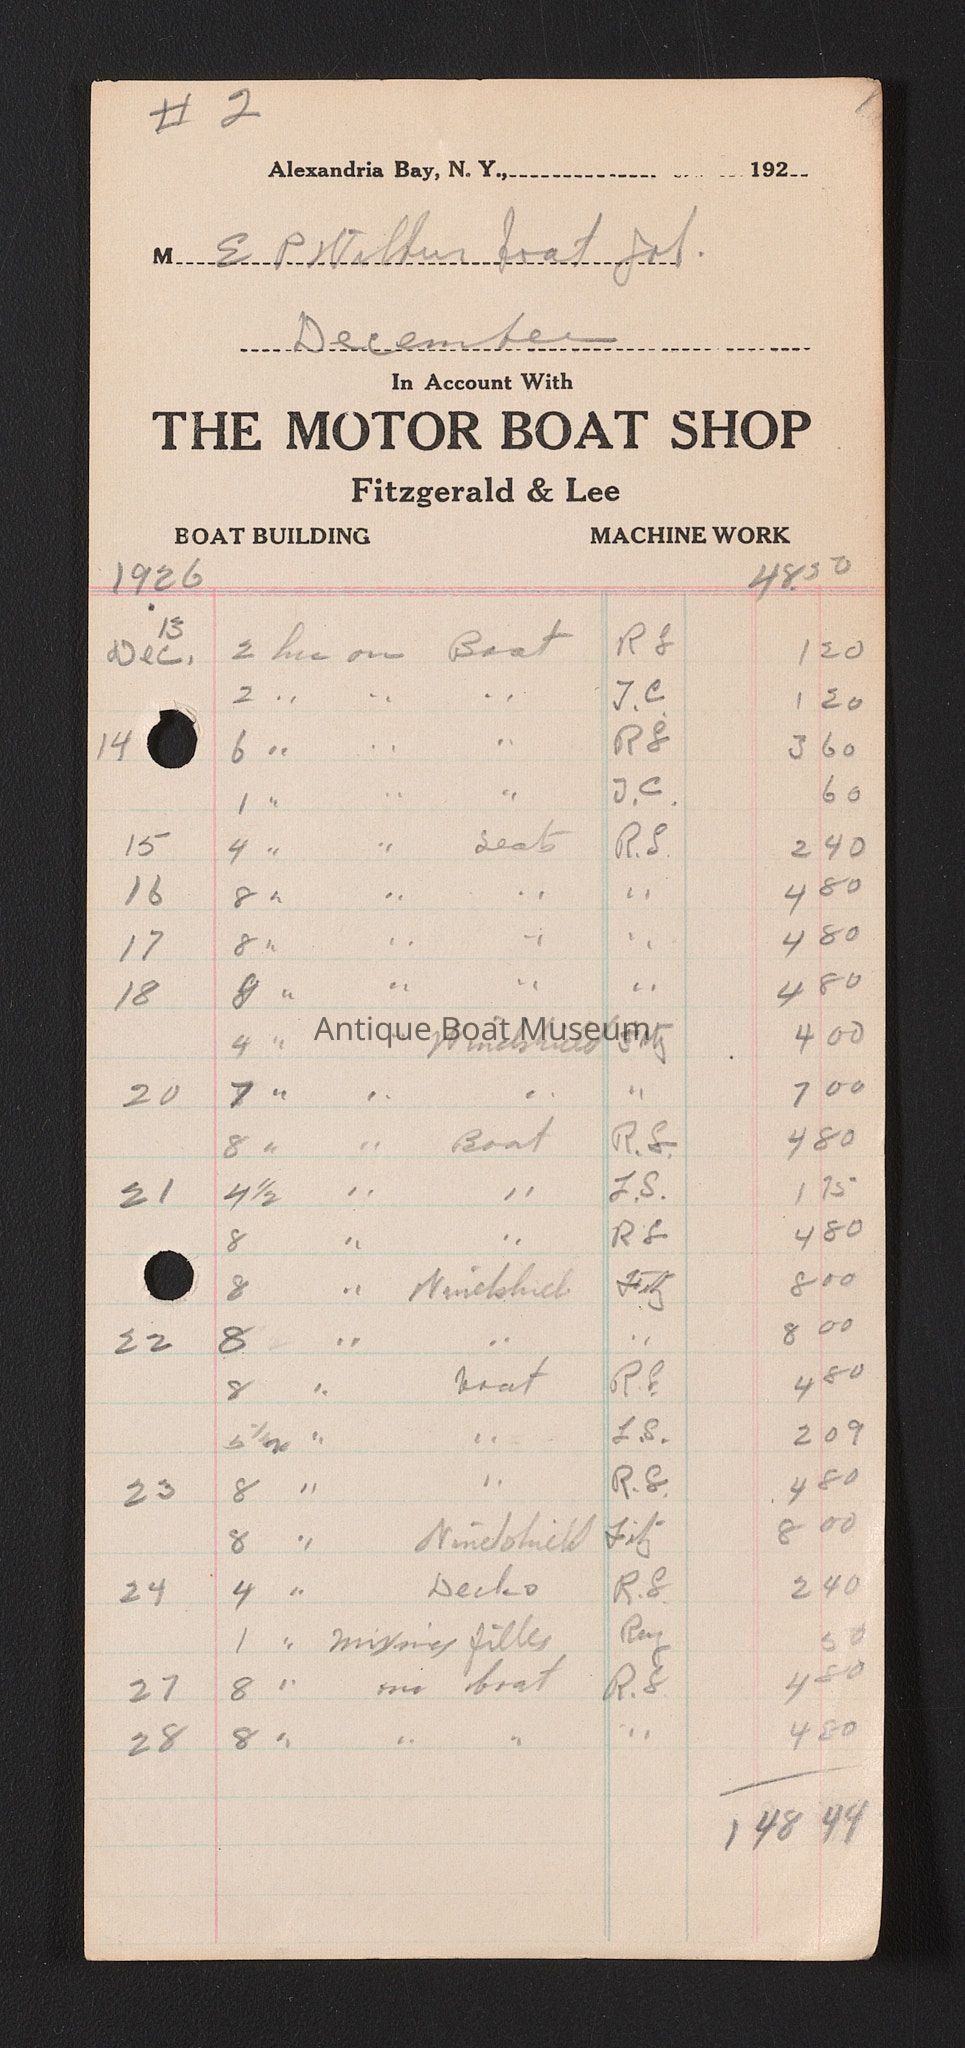 # 2
Alexandria Bay, N. Y., 192
M E P Wilbur boat Job.
December
In Account With
THE MOTOR BOAT SHOP
Fitzgerald & Lee
BOAT BUILDING MACHINE WORK
1926 48.50
Dec. 13 2 hrs on Boat R S 1 20
2 " " " J.C. 1 20
14 6 " " " R S 3 60
1 " " " J.C. 60
15 4 " " Seats R.S. 2 40
16 8 " " " " 4 80
17 8 " " " " 4 80
18 " " " " 4 80
4 " Windshield Fitz 4 00
20 7 " " " " 7 00
8 " " Boat R.S. 4 80
21 4½ " " L.S. 1 75
8 " " R S 4 80
8 " Windshield Fitz 8 00
22 8 " " " 8 00
8 " boat R.S. 4 80
" " L.S. 2 09
23 8 " " R.S. 4 80
8 " Windshield Fitz 8 00
24 4 " Decks R.S. 2 40
1 " mixing filler Ray 50
27 8 " on boat R.S. 4 80
28 8 " " " " 4 80
148 44
Antique Boat Museum